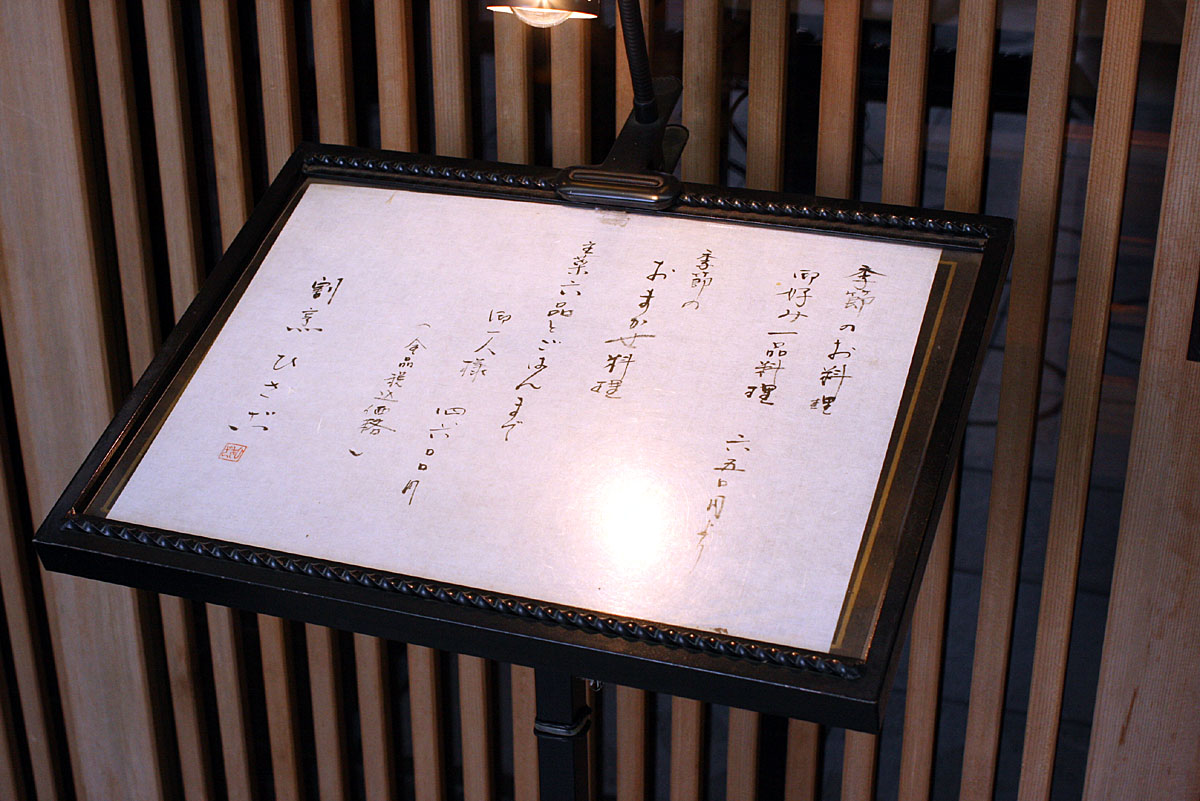 季節のお料理
御好み一品料理
六五〇円より
季節の
おまかせ料理
主菜六品とごはんまで
御一人様
四六〇〇円
（全品税込価格）
割烹 ひさご